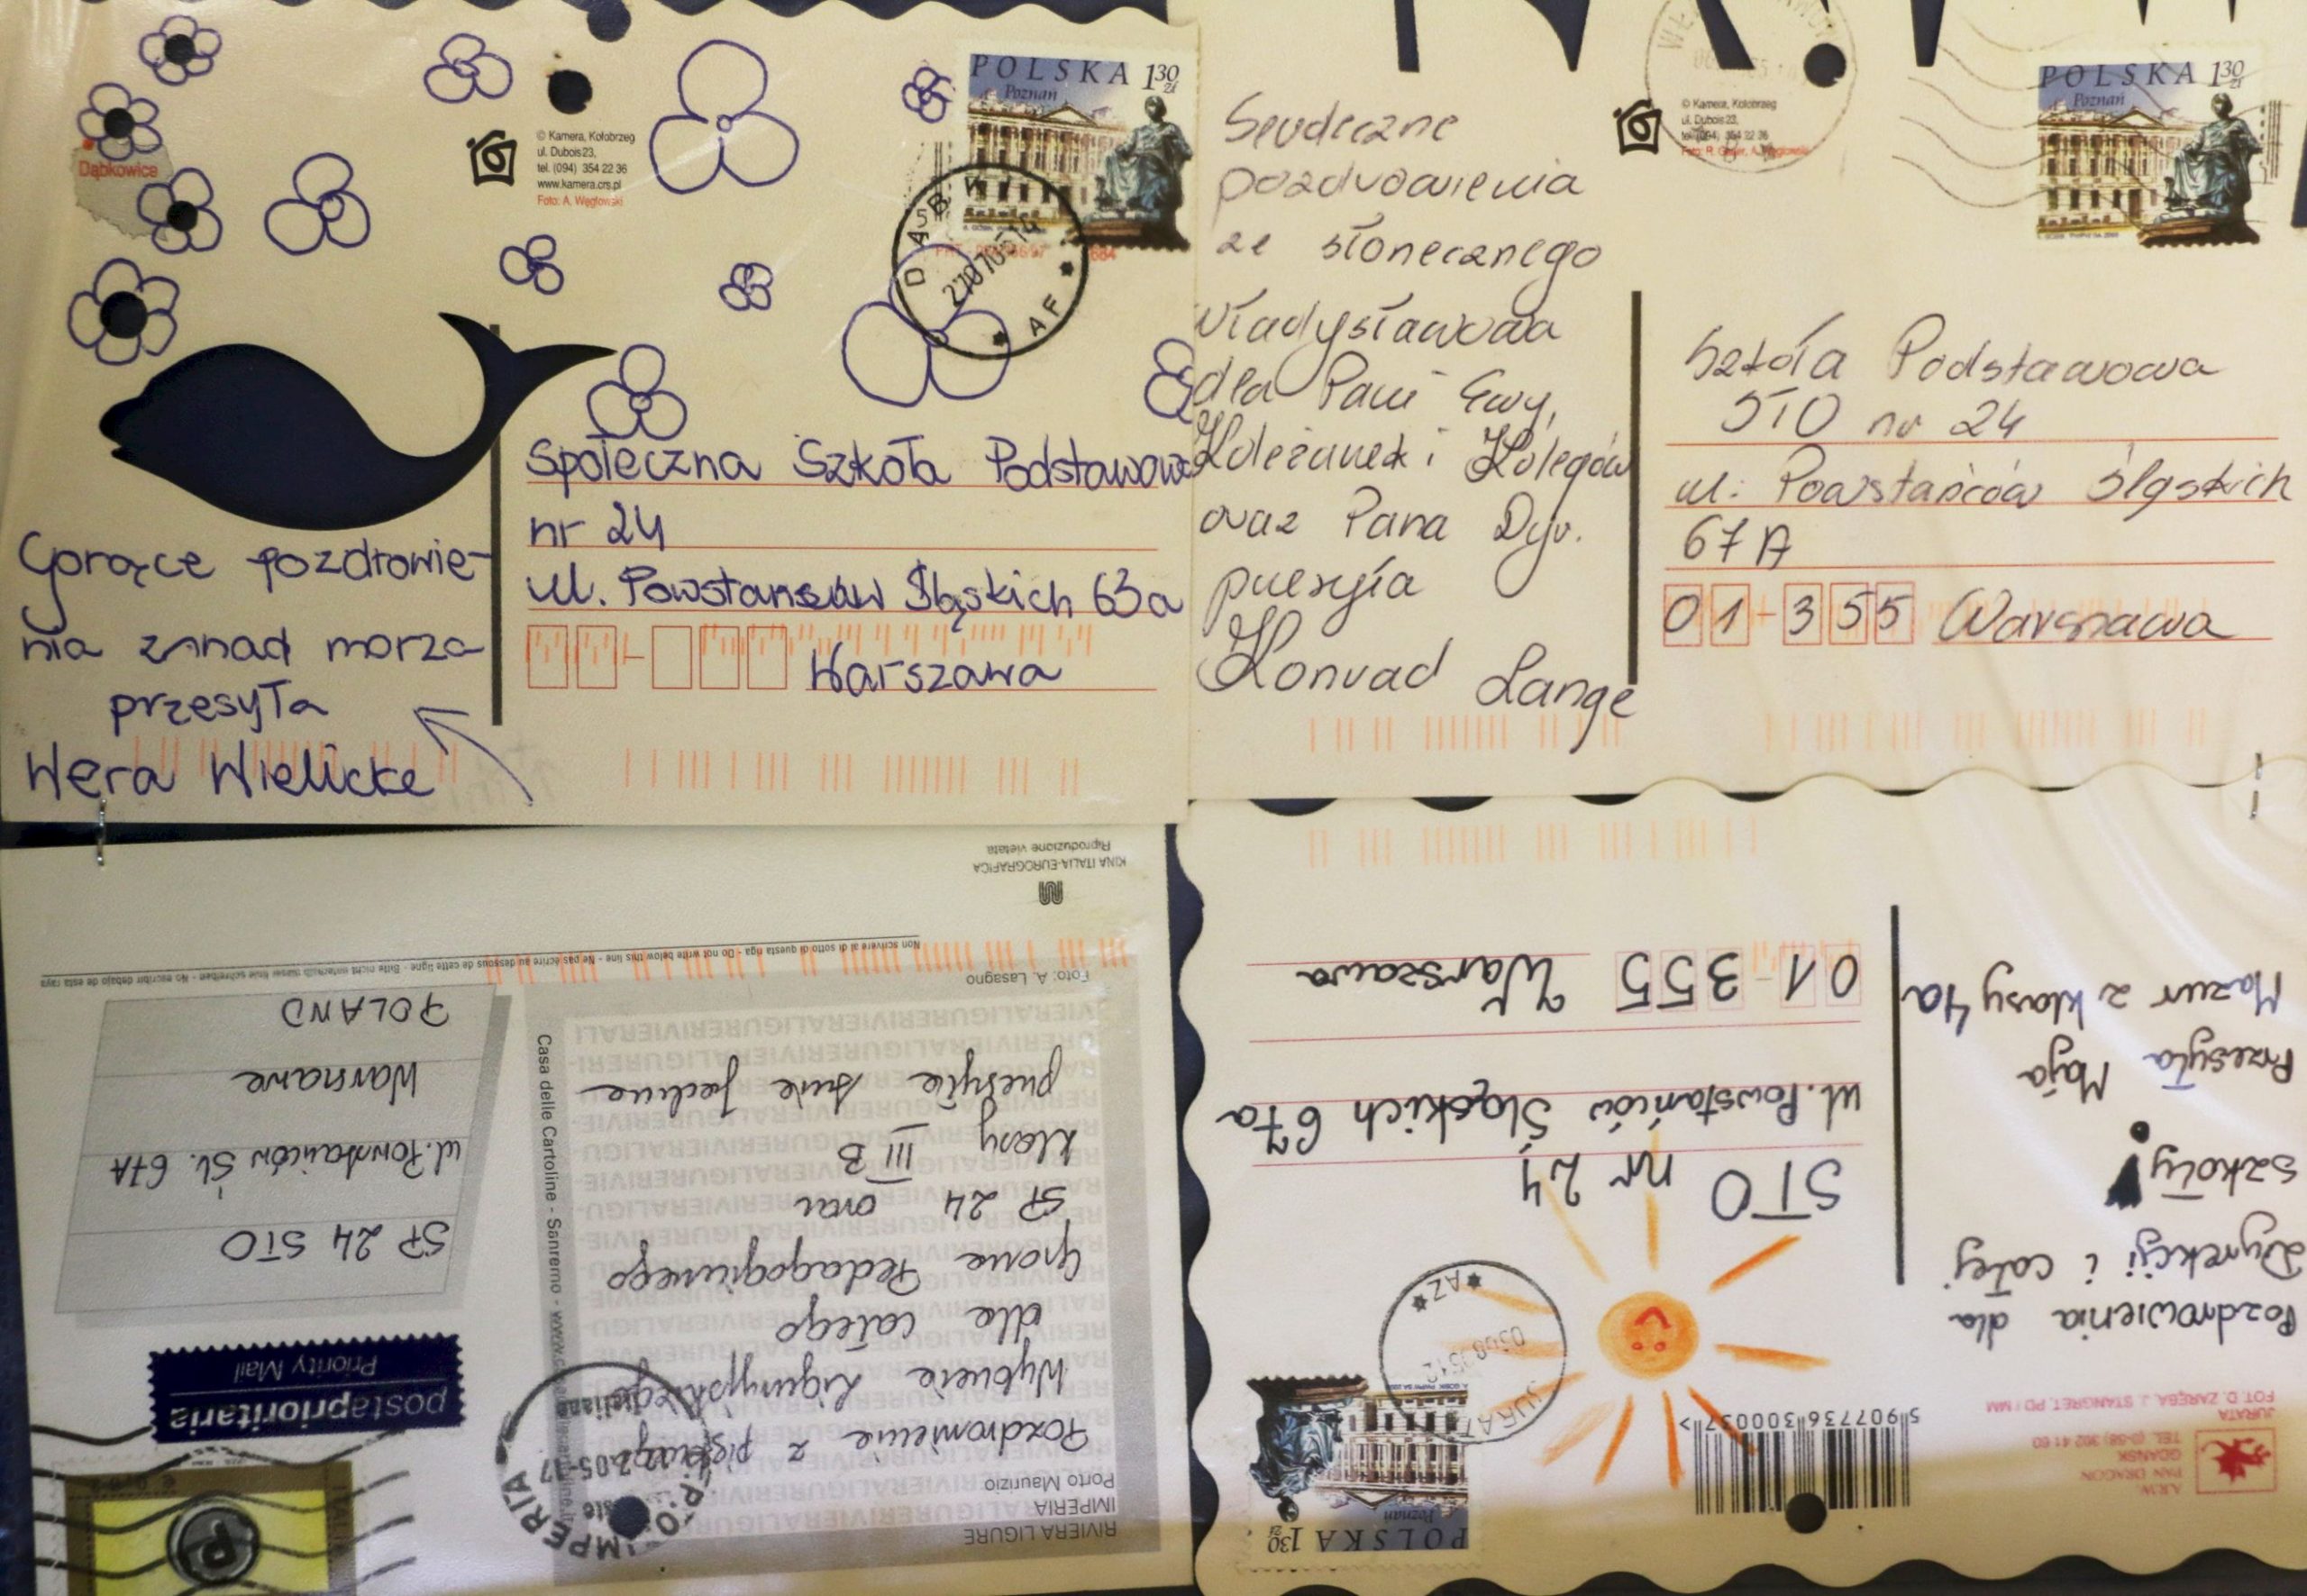 Dąbkowice
© Kamera, Kołobrzeg
ul. Dubois 23,
tel. (094) 354 22 36
www.kamera.crs.pl
Foto: A. Węgłowski
POLSKA 1 30 zł
Poznań
AF
Gorące pozdrowie-
nia znad morza
przesyła
Wera Wielicke
Społeczna Szkoła Podstawowa
nr 24
ul. Powstańców Śląskich 63a
Warszawa
© Kamera, Kołobrzeg
ul. Dubois 23,
tel. (094) 354 22 36
POLSKA 1 30 zł
Poznań
Serdeczne
pozdrowienia
ze słonecznego
Władysławowa
dla Pani Ewy,
Koleżanek i Kolegów
oraz Pana Dyr.
przesyła
Konrad Lange
Szkoła Podstawowa
STO nr 24
ul. Powstańców Śląskich
67 A
01-355 Warszawa
RIVIERA LIGURE
IMPERIA
Porto Maurizio
Pozdrowienia z pięknego
Wybrzeża Liguryjskiego
dla całego
Grona Pedagogicznego
SP 24 oraz
klasy III B
przesyła
Foto: A. Lasagno
Casa delle Cartoline - Sanremo
IMPERIA
postaprioritaria
Priority Mail
SP 24 STO
ul. Powstańców Śl. 67A
Warszawa
POLAND
Non scrivere al di sotto di questa riga - Do not write below this line - Ne pas écrire au dessous de cette ligne - Bitte nicht unterhalb dieser linie schreiben - No escribir debajo de esta raya
KINA ITALIA-EUROGRAFICA
Riproduzione vietata
A.R.W.
PAN DRAGON
GDAŃSK
JURATA
FOT. D. ZARĘBA, J. STANGRET, PD / MM
5 907736 300037 >
POLSKA 1 30 zł
Poznań
JURATA
AZ
Pozdrowienia dla
Dyrekcji i całej
szkoły!
Przesyła Maja
Mazur z klasy 4a
STO nr 24
ul. Powstańców Śląskich 67a
01-355 Warszawa